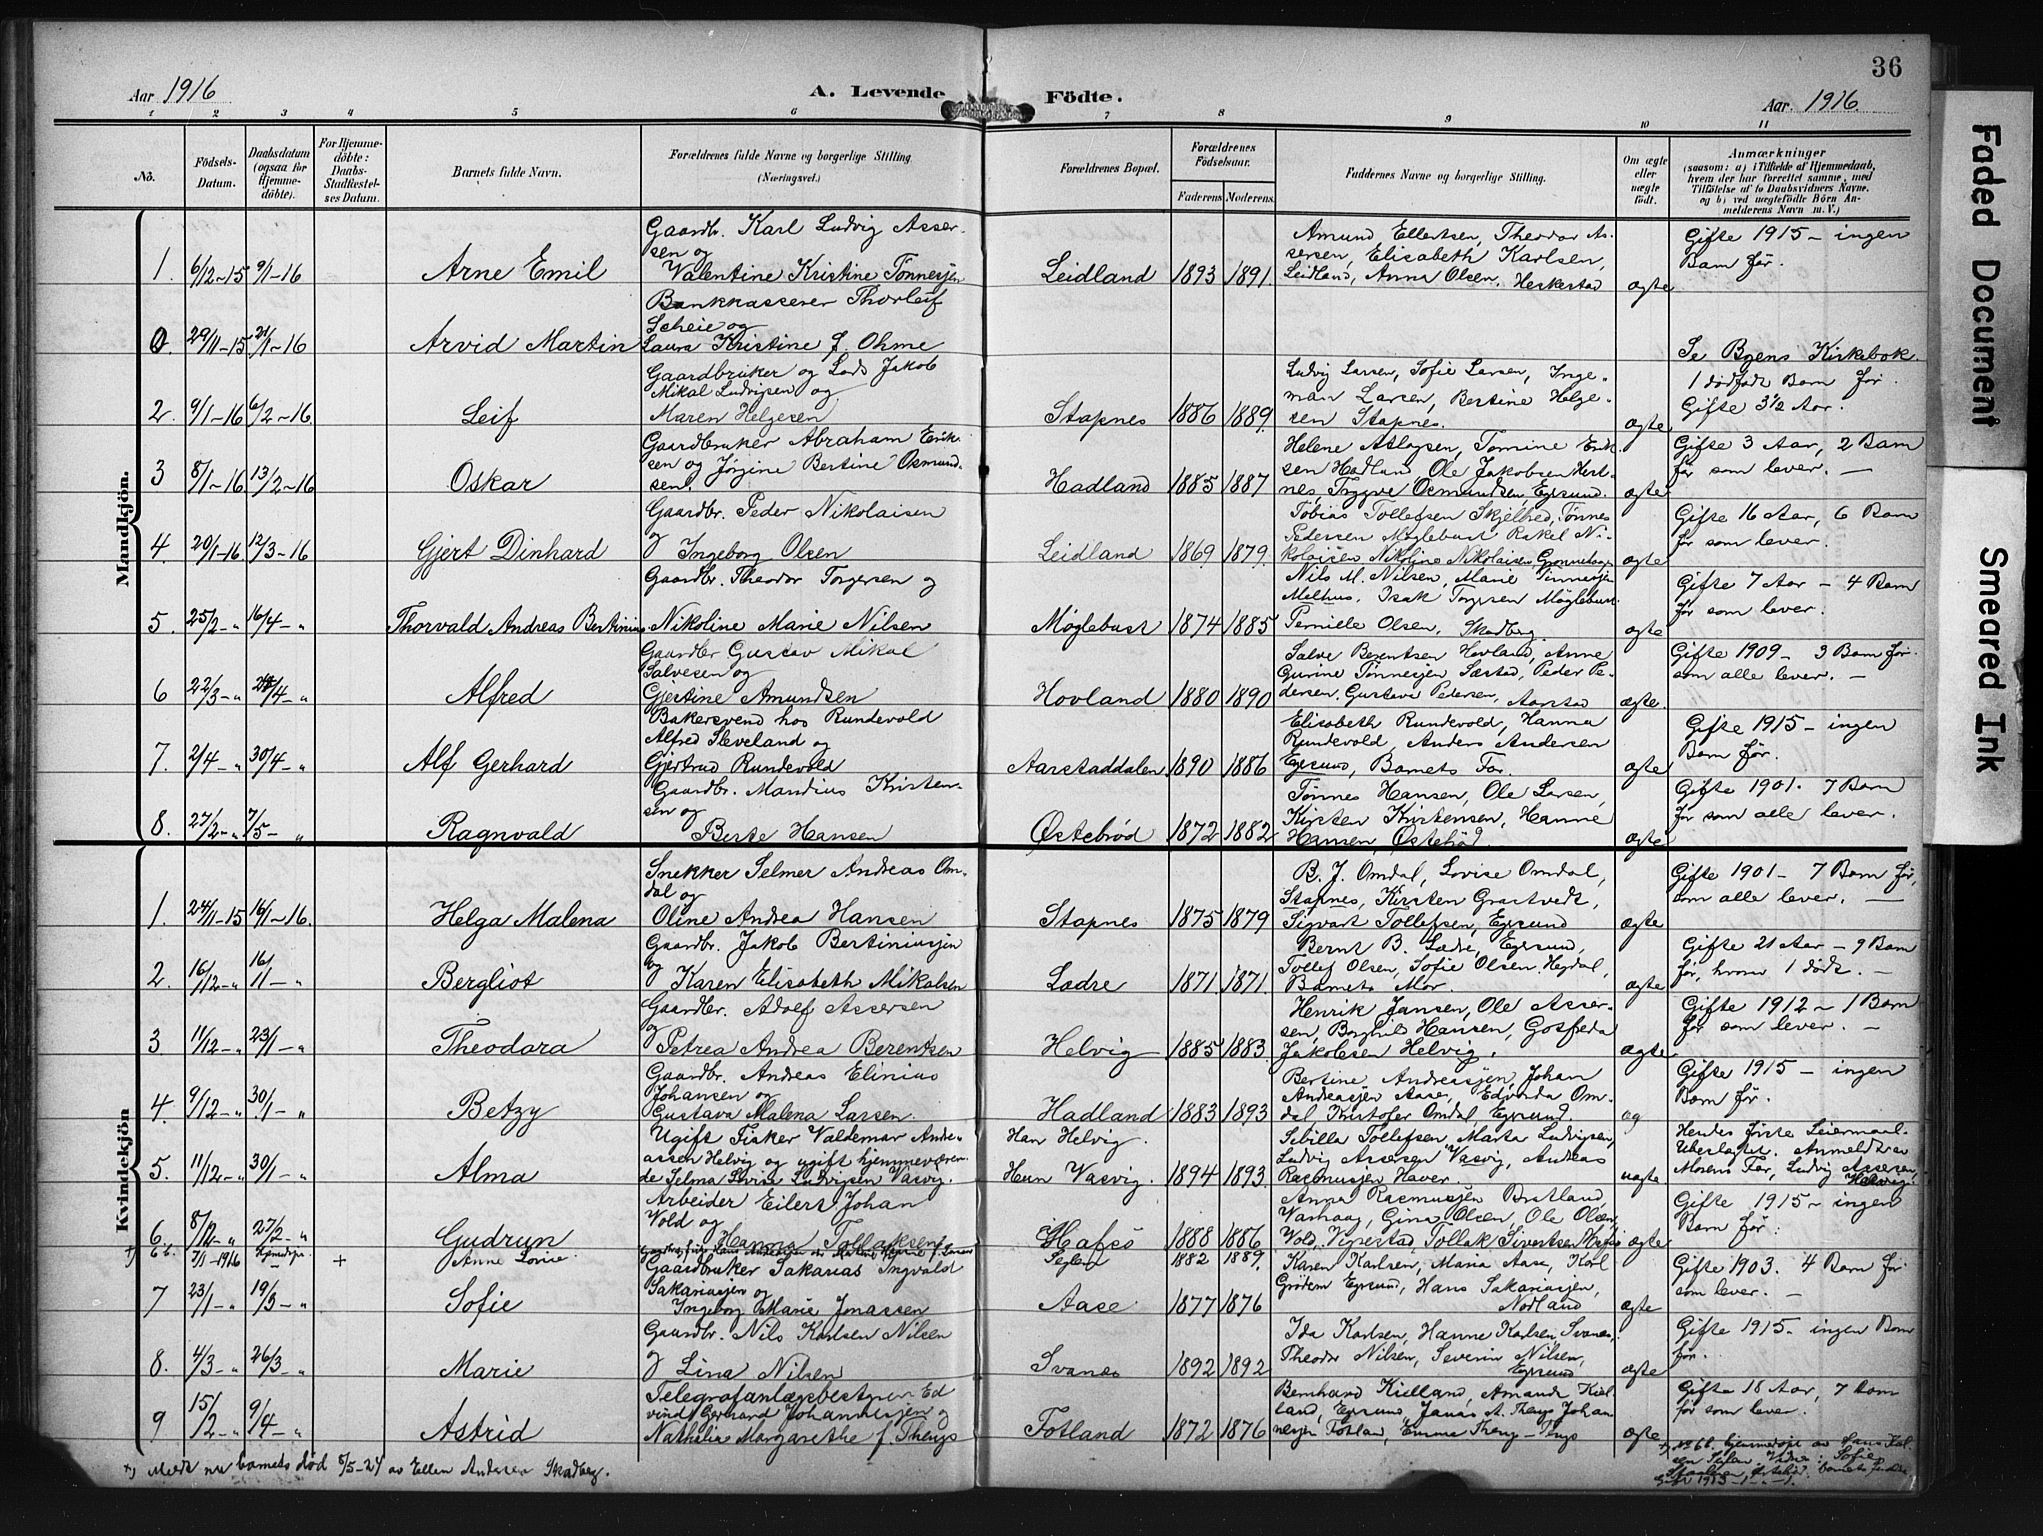 36
Aar 1916
A. Levende Födte.
Aar. 1916.
1 2 3 4 5 6 7 8 9 10 11
No.
Födsels-Datum.
Daabsdatum (ogsaa for Hjemmedöbte).
For Hjemmedöbte: Daabs-Stadfestelses Datum.
Barnets fulde Navn.
Forældrenes fulde Navne og borgerlige Stilling (Næringsvei.)
Forældrenes Bopæl.
Forældrenes Födselsaar.
Faderens Moderens
Faddernes Navne og borgerlige Stilling.
Om ægte eller uægte födt.
Anmærkninger
(saasom: a) i Tilfælde af Hjemmedaab, hvem der har forrettet samme, med Tilföielse af to Daabsvidners Navne. og b) ved uægtefödte Börn Anmelderens Navn m. V.)
Faded Document
Smeared Ink
Mandkjön.
1. 6/12-15 9/1-16 Arne Emil Gaardbr. Karl Ludvig Assersen og Valentine Kristine Tønnesjen Leidland 1893 1891. Amund Ellertsen, Theodor Assersen, Elisabeth Karlsen, Leidland, Anna Olsen, Heskestad ægte Gifte 1915 - ingen Barn før.
0. 29/11-15 21/1-16 Arvid Martin Bankkasserer Thorleif Scheie og Laura Kristine f. Ohme Se Byens Kirkebok.
2. 9/1-16 6/2-16 Leif Gaardbruker og Lods Jakob Mikal Ludvigsen og Maren Helgesen Stapnes 1886 1889. Ludvig Larsen, Sofie Larsen, Ingeman Larsen, Bertine Helgesen Stapnes. ægte 1 dødfødt Barn før. Gifte 3 1/2 Aar.
3 8/1-16 13/2-16 Oskar Gaardbruker Abraham Eriksen og Jørgine Bertine Osmundsen. Hadland 1885 1887 Helene Atlagsen, Tomine Eriksen Hadland Ole Jakobsen Hestnes, Trygve Osmundsen, Egersund. ægte Gifte 3 Aar, 2 Barn før som lever.
4. 20/1-16 12/3-16 Gjert Dinhard Gaardbr. Peder Nikolaisen og Ingeborg Olsen Leidland 1869 1879. Tobias Tollefsen Skjelbred, Tønnes Pedersen Møglebust Rakel Nikolaisen Nikoline Nikolaisen ægte Gifte 16 Aar, 6 Barn før som lever.
5. 25/2-" 16/4-" Thorvald Andreas Bertinius Gaardbr. Theodor Torgersen og Nikoline Marie Nilsen Møglebust 1874 1885 Nils M. Nilsen, Marie Tønnesjen Melhus, Isak Torgersen Møglebust Pernille Olsen, Skadberg ægte Gifte 7 Aar - 4 Barn før som lever.
6 22/3-" 24/4-" Alfred Gaardbr Gustav Mikal Salvesen og Gjertine Amundsen Hovland 1880 1890 Salve Berentsen Hovland, Anne Gurine Tønnesjen Sæstad, Peder Pedersen, Gustava Pedersen, Aarstad ægte. Gifte 1909 - 3 Barn før som alle lever.
7. 2/4-" 30/4-" Alf Gerhard Bakersvend hos Rundevold Alfred Sleveland og Gjertrud Rundevold Aarstaddalen 1890 1886 Elisabeth Rundevold, Hanna Rundevold, Anders Andersen Egersund, Barnets Far. ægte Gifte 1915 - ingen Barn før.
8. 27/2-" 7/5-" Ragnvald Gaardbr. Mandius Kristensen og Berte Hansen Østebrød 1872 1882 Tønnes Hansen, Ole Larsen, Kirsten Kristensen, Hanne Hansen Østebød. ægte Gifte 1901. 7 Barn før som alle lever.
Kvindekjön
1. 24/11-15 16/1-16. Helga Malena Snekker Selmer Andreas Omdal og Oline Andrea Hansen Stapnes 1875 1879 B. J. Omdal, Lovise Omdal, Stapnes, Kirsten Grastvedt, Sigvart Tollefsen, Egersund ægte Gifte 1901 - 7 Barn før, som alle lever.
2. 16/12-" 16/11-" Bergliot Gaardbr. Jakob Bertiniusjen og Karen Elisabeth Mikalsen Lædre 1871. 1871. Bernt B. Lædre, Egersund, Tollef Olsen, Sofie Olsen. Hegdal, Barnets Mor. ægte Gifte 21 Aar - 9 Barn før, hvorav 1 dødt.
3 11/12-" 23/1-" Theodora Gaardbr. Adolf Assersen og Petrea Andrea Berentsen Helvig 1885 1883. Henrik Jansen, Ole Assersen, Borghild Hansen, Gosfreda Jakobsen Helvig. ægte Gifte 1912 - 1 Barn før som lever.
4. 9/12-" 30/1-" Betzy Gaardbr. Andreas Elinius Johansen og Gustava Malena Larsen. Hadland 1883 1893 Bertine Andreasjen, Johan Andreasjen Aase, Edvarda Omdal, Kristofer Omdal, Egersund. æg Gifte 1915 - ingen Barn før.
5. 11/12-" 30/1-" Alma Ugift Fisker Valdemar Andreassen Helvig og ugift hjemmeværende Selma Lovise Ludvigsen Vasvig. Han Helvig. Hun Vasvig. 1894 1893. Sibilla Tollefsen, Marta Ludvigsen, Ludvig Assersen Vasvig, Andreas Rasmusjen Haver uægte Hendes første Leiermaal. Anmeldt av Morens Far, Ludvig Assersen,
6. 8/12-" 27/2-" Gudrun Arbeider Eilert Johan Vold og Hanna Tollaksen Hafsø 1888 1886 Anna Rasmusjen Bratland, Varhaug, Gina Olsen, Ole Olsen, Vold, Vigrestad, Tollak Sivertsen Hafsø ægte Gifte 1915 - ingen Barn før.
+) 6 b. 7/1-1916 hjemmedøpt + Anne Lovise Seglem 1882 1889.
7 23/1-" 19/3-" Sofie Gaardbruker Sakarias Ingvald Sakariasjen og Ingeborg Marie Jonassen Aase 1877 1876 Karen Karlsen, Maria Aase, Karl Grødem Egersund, Hans Sakariasjen, Nodland ægte Gifte 1903. 4 Barn før som lever.
8. 4/3-" 26/3-" Marie Gaardbr. Nils Karlsen Nilsen og Lina Nilsen Svanes 1892 1892 Ida Karlsen, Hanne Karlsen, Svanes, Theodor Nilsen, Severin Nilsen, Egersund ægte Gifte 1915 - ingen Barn før.
9 15/2-" 9/4-" Astrid Telegrafanlægsbestyrer Edvind Gerhard Johannesjen og Nathalia Margarethe f. Thengs Fotland 1872 1876 Bernhard Kielland, Amanda Kielland, Egersund, Jonas A. Thengs Johannesjen Fotland, Emma Theng - Thengs ægte Gifte 18 Aar, 7 Barn før som lever.
+) Meldt nu barnets død 5/5-24 av Ellen Andersen Skadberg.
+) No 6 b. hjemmedøpt av